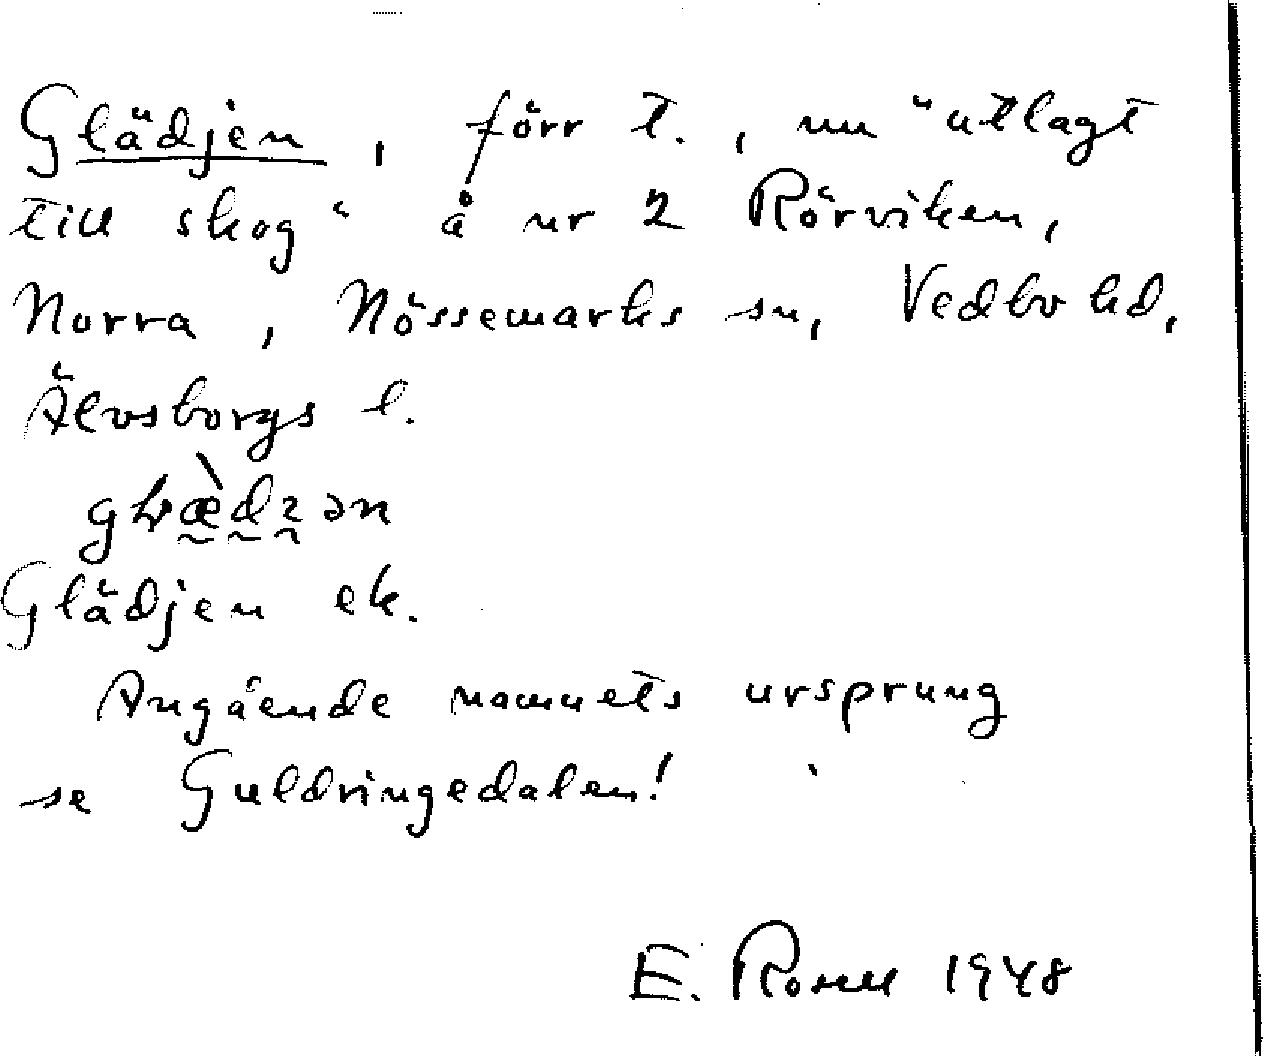 Glädjen, förr t., nu "utlagt
till skog" å nr 2 Rörviken,
Norra, Nössemarks sn, Vedbo hd,
Älvsborgs l.
Glädjen ek.
Angående namnets ursprung
se Guldringedalen!
E. 1948